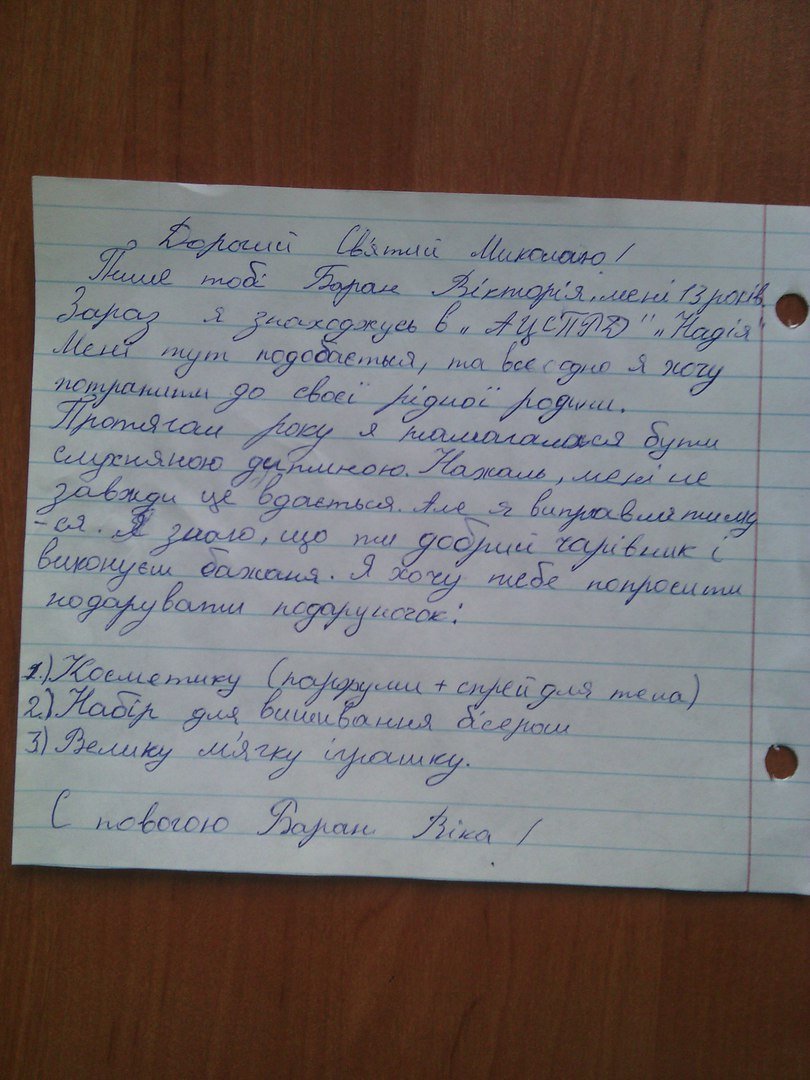 Дорогий Святий Миколаю!
Пише тобі Баран Вікторія, мені 13 років.
Зараз я знаходжусь в „АЦСПРД" „Надія"
Мені тут подобається, та все одно я хочу
потрапити до своєї рідної родини.
Протягом року я намагалася бути
слухняною дитиною. Нажаль, мені не
завжди це вдається. Але я виправлятиму
-ся. Я знаю, що ти добрий чарівник і
виконуєш бажаня. Я хочу тебе попросити
подарувати подаруночок:
1.) Косметику (парфуми + спрей для тела)
2.) Набір для вишивання бісером
3) Велику м'ягку іграшку.
С повагою Баран Віка!